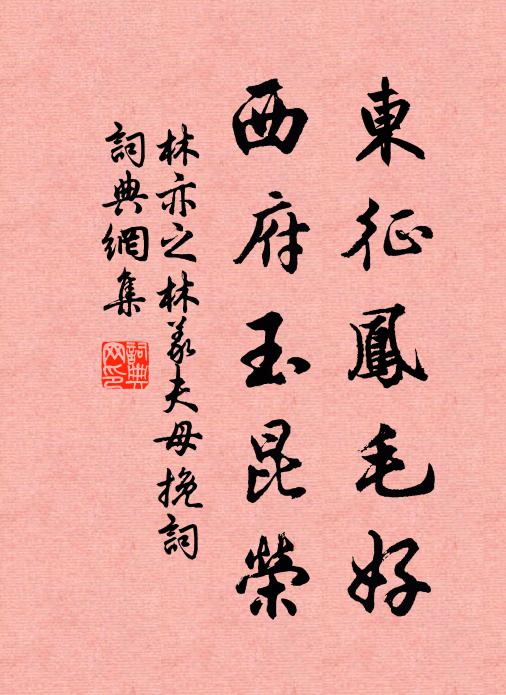 東征鳳毛好
西府玉昆榮
林亦之林義夫母挽詞
詞典網集
詞典
网印